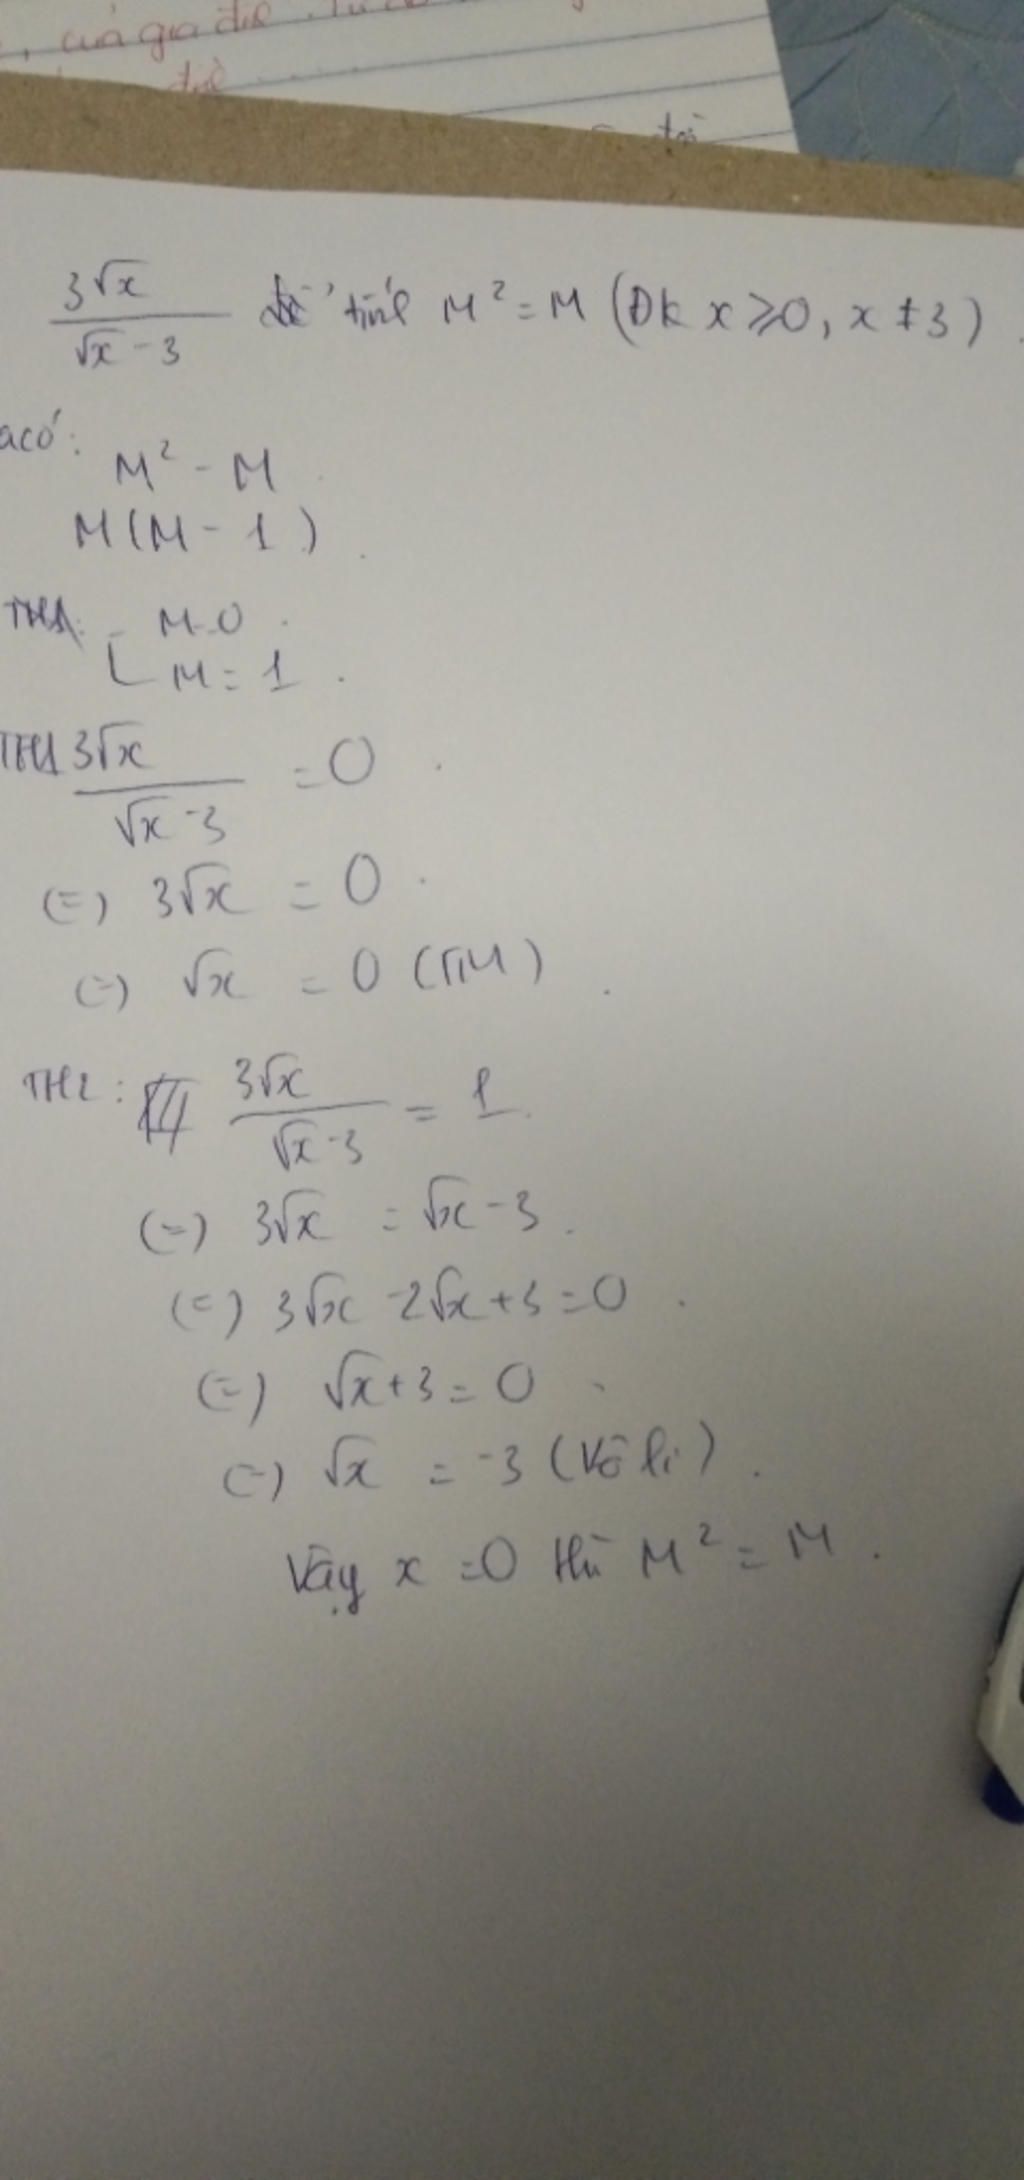 , của gia đình
đình
3√x / √x - 3 để tính M² = M (Đk x ≥ 0, x ≠ 3)
acó:
M² - M
M(M - 1)
M = 0
M = 1
TH1 3√x / √x - 3 = 0
(=) 3√x = 0
(=) √x = 0 (TM)
TH2: 3√x / √x - 3 = 1
(=) 3√x = √x - 3
(=) 3√x - 2√x + 3 = 0
(=) √x + 3 = 0
(=) √x = -3 (Vô lí)
Vậy x = 0 thì M² = M